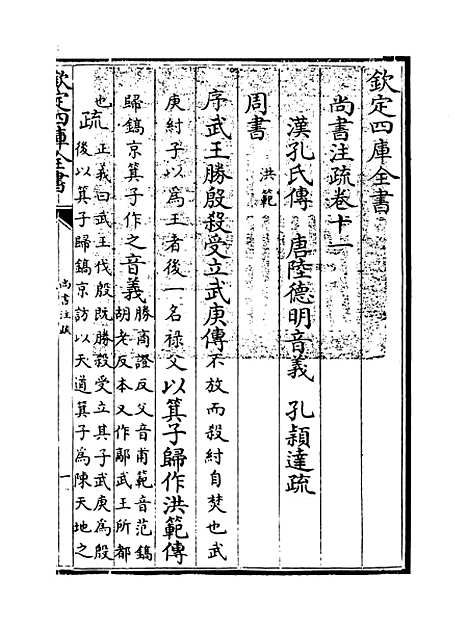 欽定四庫全書
尚書注疏卷十一
漢孔氏傳　唐陸德明音義　孔穎達疏
周書
洪範
序武王勝殷殺受立武庚傳不放而殺紂自焚也武
庚紂子以為王者後一名祿父以箕子歸作洪範傳
歸鎬京箕子作之音義勝商證反父音甫範音范鎬
胡老反本又作鄗武王所都
也
疏正義曰武王伐殷既勝殺受立其子武庚為殷
後以箕子歸鎬京訪以天道箕子為陳天地之
欽定四庫全書
尚書注疏
一